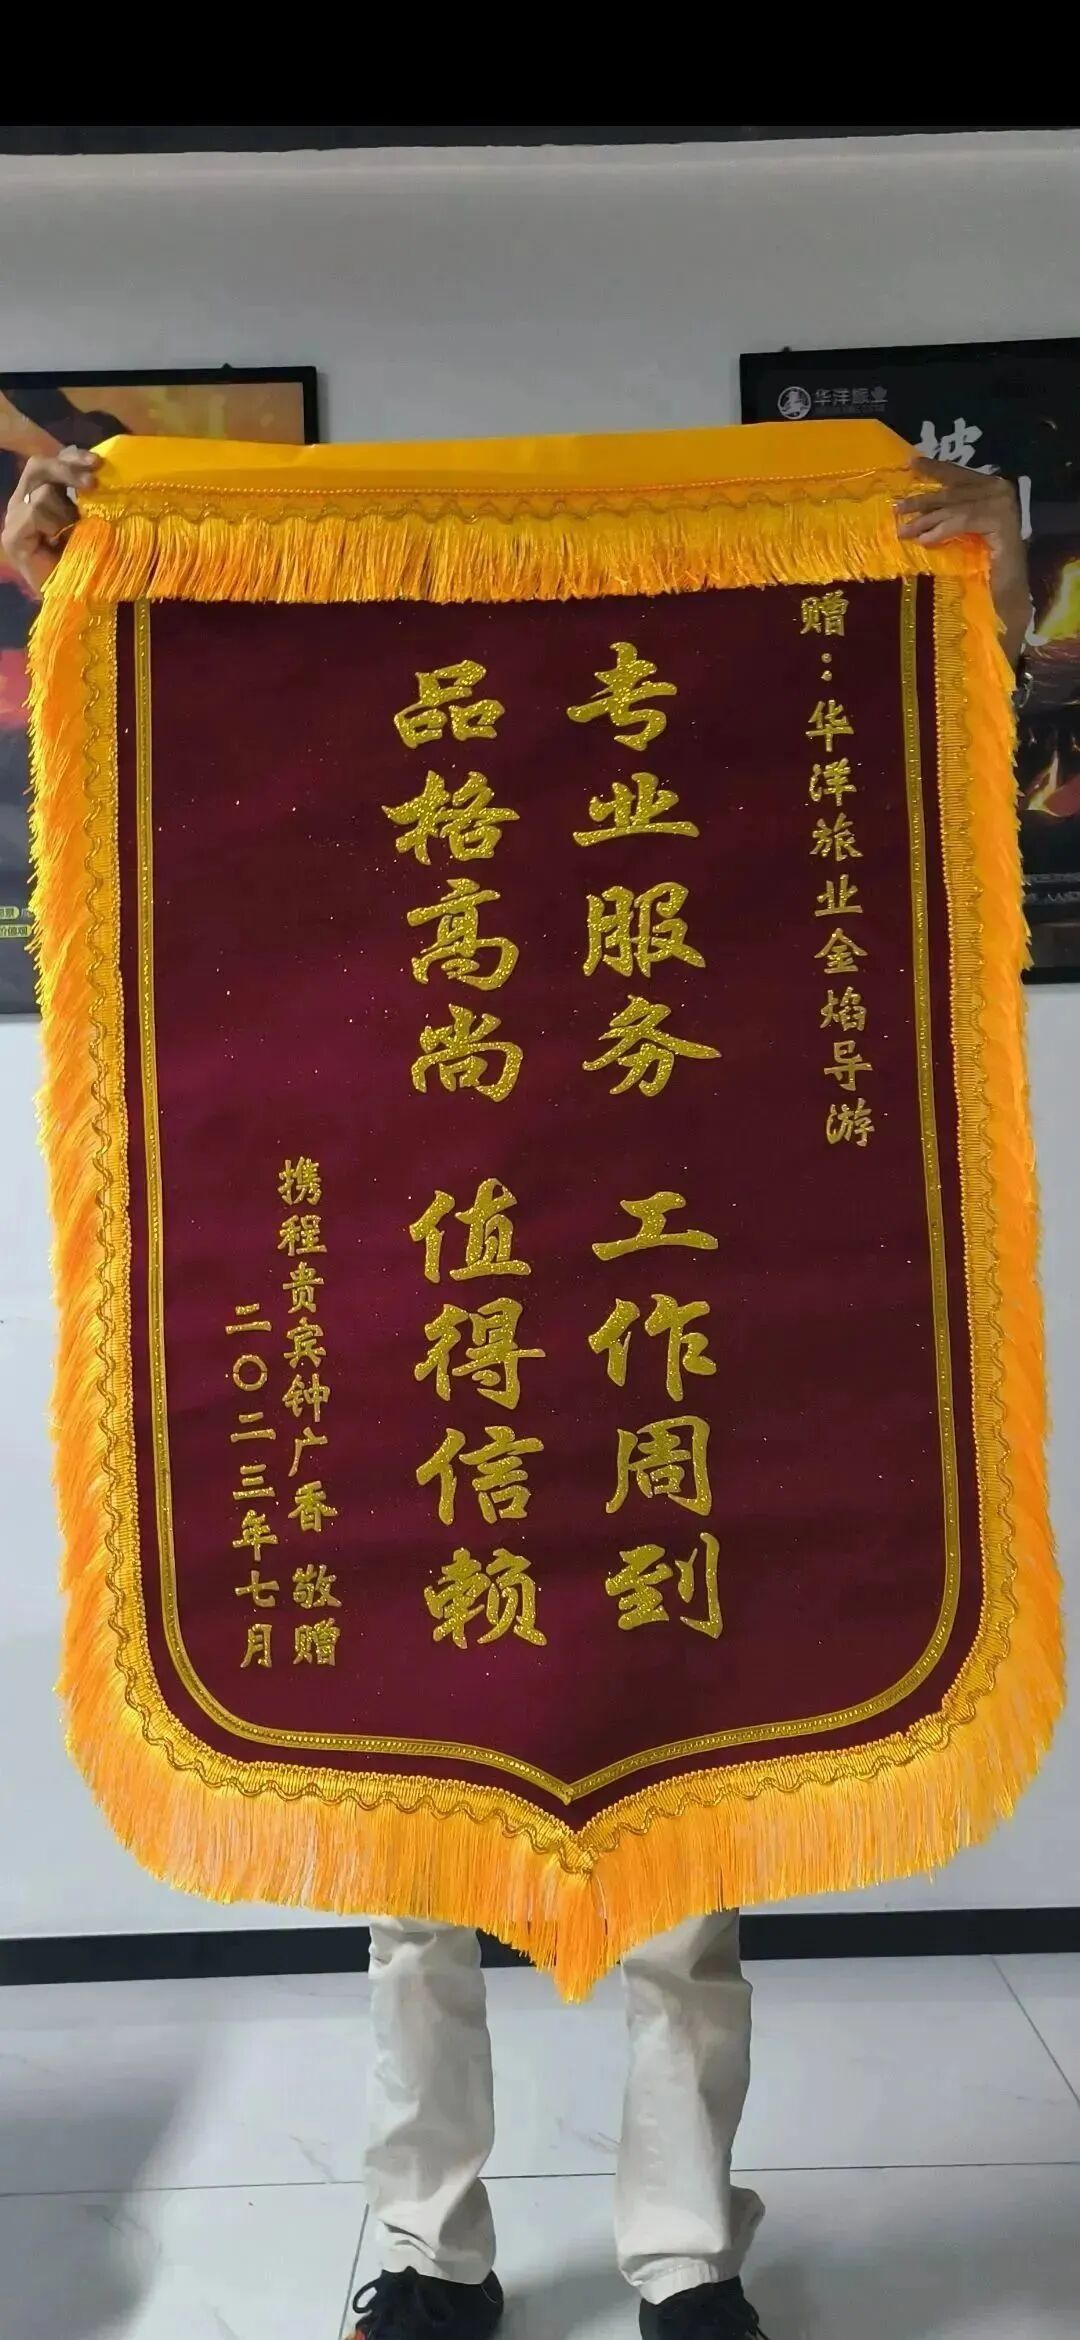 赠：华洋旅业金焰导游
专业服务 工作周到
品格高尚 值得信赖
携程贵宾钟广香 敬赠
二〇二三年七月
华洋旅业